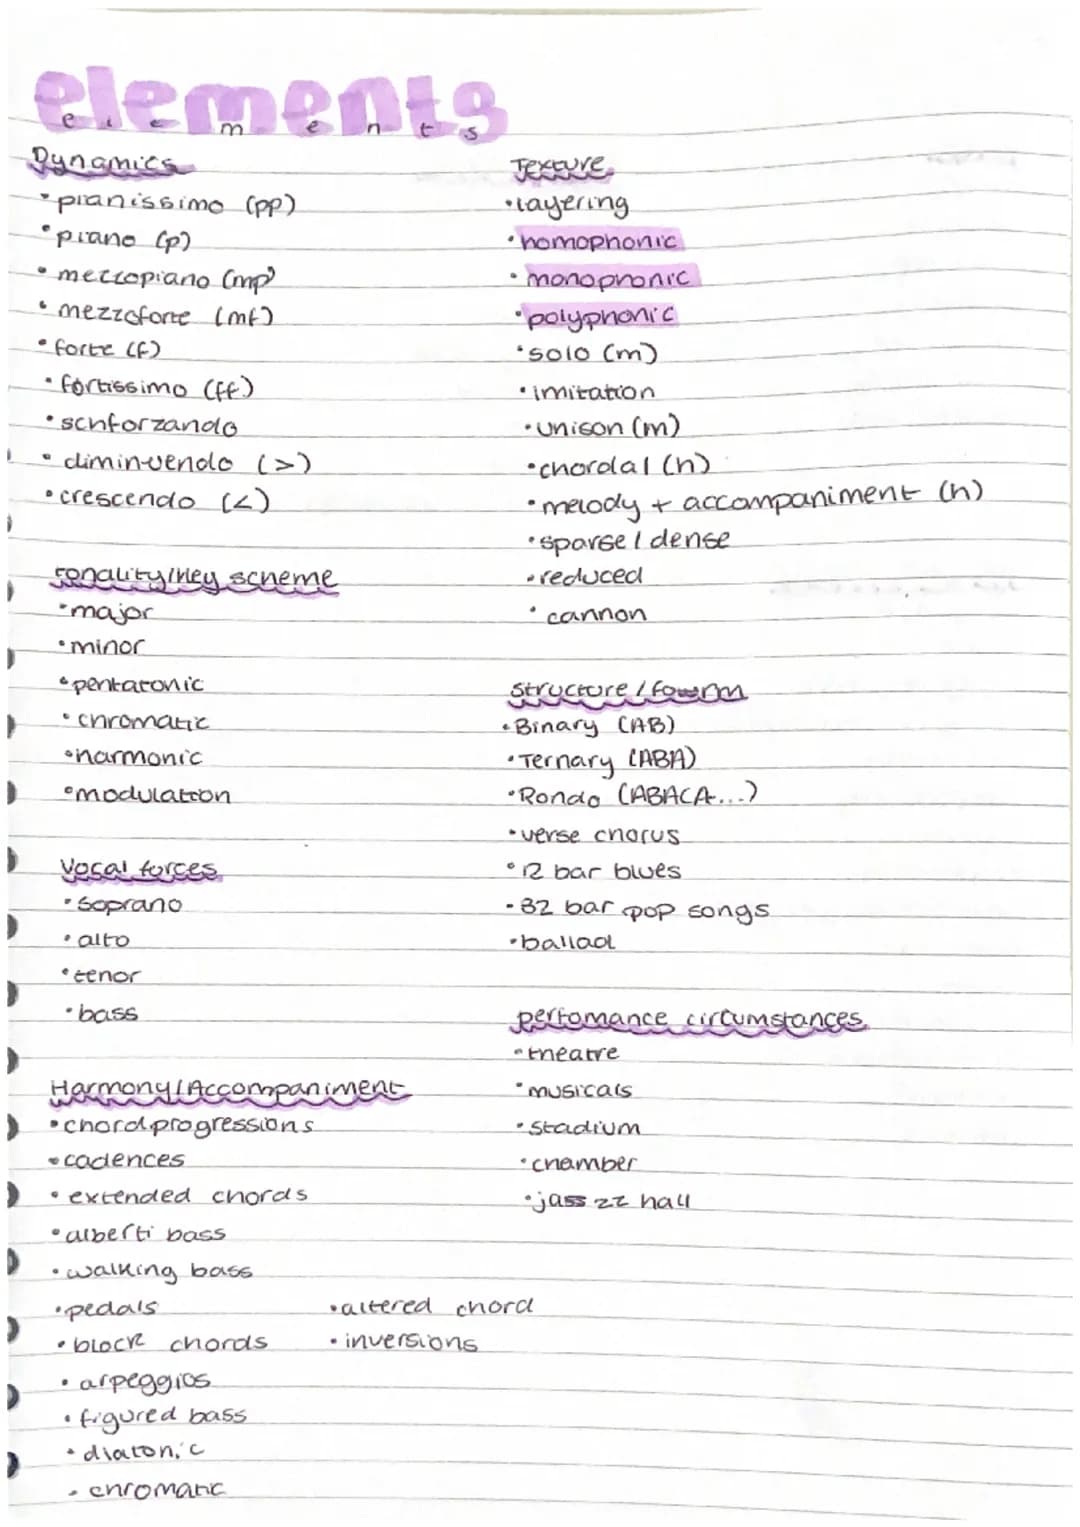 elements
elements
Dynamics
•pianissimo (pp)
•piano (p)
•mezzopiano (mp)
•mezzoforte (mf)
•forte (f)
•fortissimo (ff)
•schforzando
•diminuendo (>)
•crescendo (<)
tonality/key scheme
•major
•minor
•pentatonic
•chromatic
•harmonic
•modulation
Vocal forces
•soprano
•alto
•tenor
•bass
Harmony/Accompaniment
•chord progressions
•cadences
•extended chords
•alberti bass
•walking bass
•pedals
•block chords
•arpeggios
•figured bass
•diatonic
•chromatic
•altered chord
•inversions
Texture
•layering
•homophonic
•monophonic
•polyphonic
•solo (m)
•imitation
•unison (m)
•chordal (h)
•melody + accompaniment (h)
•sparse / dense
•reduced
•cannon
structure / form
•Binary (AB)
•Ternary (ABA)
•Rondo (ABACA...)
•verse chorus
•12 bar blues
•32 bar pop songs
•ballad
perfomance circumstances
•theatre
•musicals
•stadium
•chamber
•jass zz hall